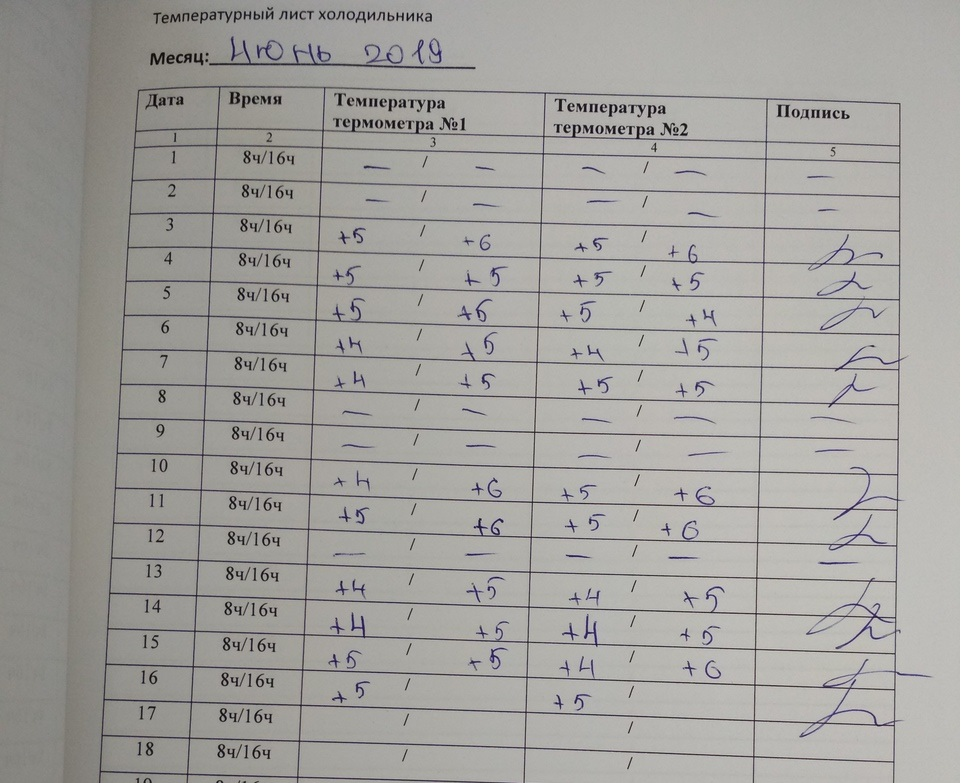 Температурный лист холодильника
Месяц: Июнь 2019
Дата Время Температура термометра №1 Температура термометра №2 Подпись
1 2 3 4 5
1 8ч/16ч — / — — / — —
2 8ч/16ч — / — — / — —
3 8ч/16ч +5 / +6 +5 / +6
4 8ч/16ч +5 / +5 +5 / +5
5 8ч/16ч +5 / +6 +5 / +4
6 8ч/16ч +4 / +5 +4 / +5
7 8ч/16ч +4 / +5 +5 / +5
8 8ч/16ч — / — — / — —
9 8ч/16ч — / — — / — —
10 8ч/16ч +4 / +6 +5 / +6
11 8ч/16ч +5 / +6 +5 / +6
12 8ч/16ч — / — — / — —
13 8ч/16ч +4 / +5 +4 / +5
14 8ч/16ч +4 / +5 +4 / +5
15 8ч/16ч +5 / +5 +4 / +6
16 8ч/16ч +5 / +5 /
17 8ч/16ч / /
18 8ч/16ч / /